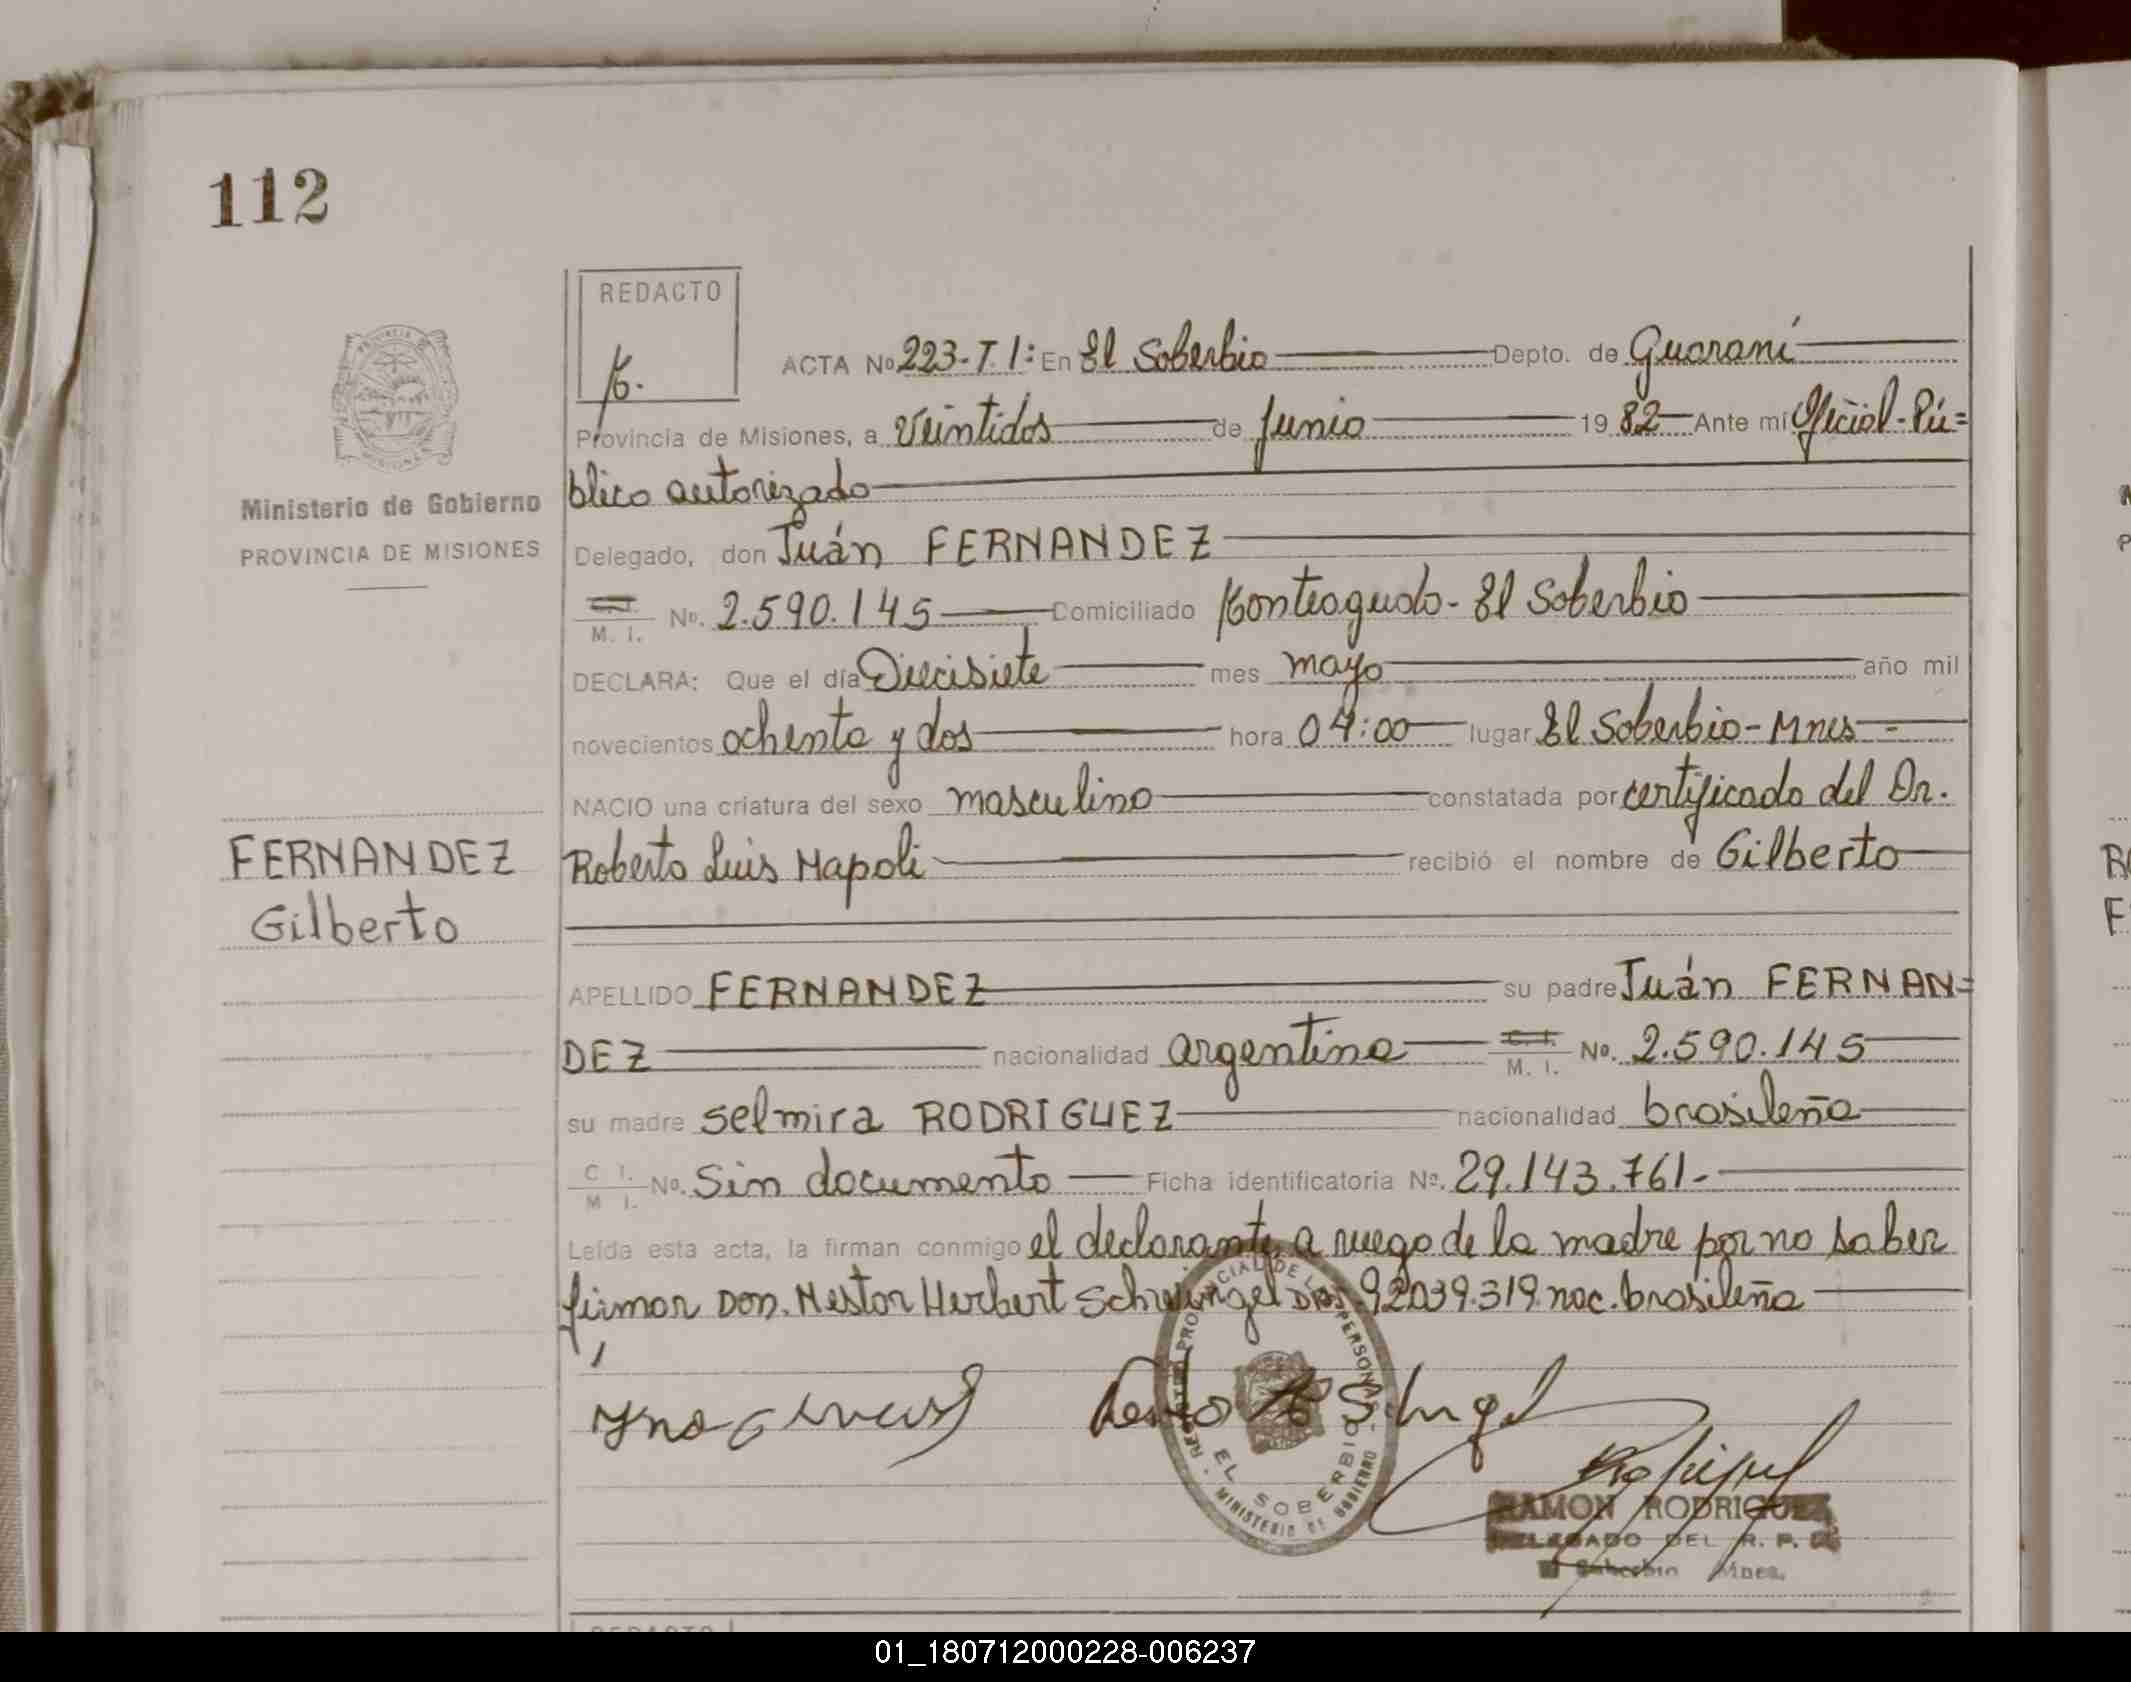 112
REDACTO
K.
ACTA No 223-T.I: En El Soberbio Depto. de Guaraní
Provincia de Misiones, a veintidos de Junio 19 82 Ante mí Oficial-Pú=
blico autorizado
Ministerio de Gobierno
PROVINCIA DE MISIONES
Delegado, don Juán FERNANDEZ
C. I. M. I. No. 2.590.145 Domiciliado Monteagudo- El Soberbio
DECLARA: Que el día Diecisiete mes mayo año mil
novecientos ochenta y dos hora 04:00 lugar El Soberbio-Mnes-
NACIO una criatura del sexo masculino constatada por certificado del Dr.
FERNANDEZ
Roberto Luis Napoli recibió el nombre de Gilberto
Gilberto
APELLIDO FERNANDEZ su padre Juán FERNAN=
DEZ nacionalidad argentina C. I. M. I. No. 2.590.145
su madre Selmira RODRIGUEZ nacionalidad brasileña
C I. M I. No. Sin documento Ficha identificatoria No. 29.143.761-
Leída esta acta, la firman conmigo el declarante, a ruego de la madre por no saber
firmar Don. Nestor Herbert Schwingel 92039.319 nac. brasileña
REGISTRO PROVINCIAL DE LAS PERSONAS
EL SOBERBIO
MINISTERIO DE GOBIERNO
RAMON RODRIGUEZ
DELEGADO DEL R. P. P.
El Soberbio Mnes.
REDACTO
01_180712000228-006237